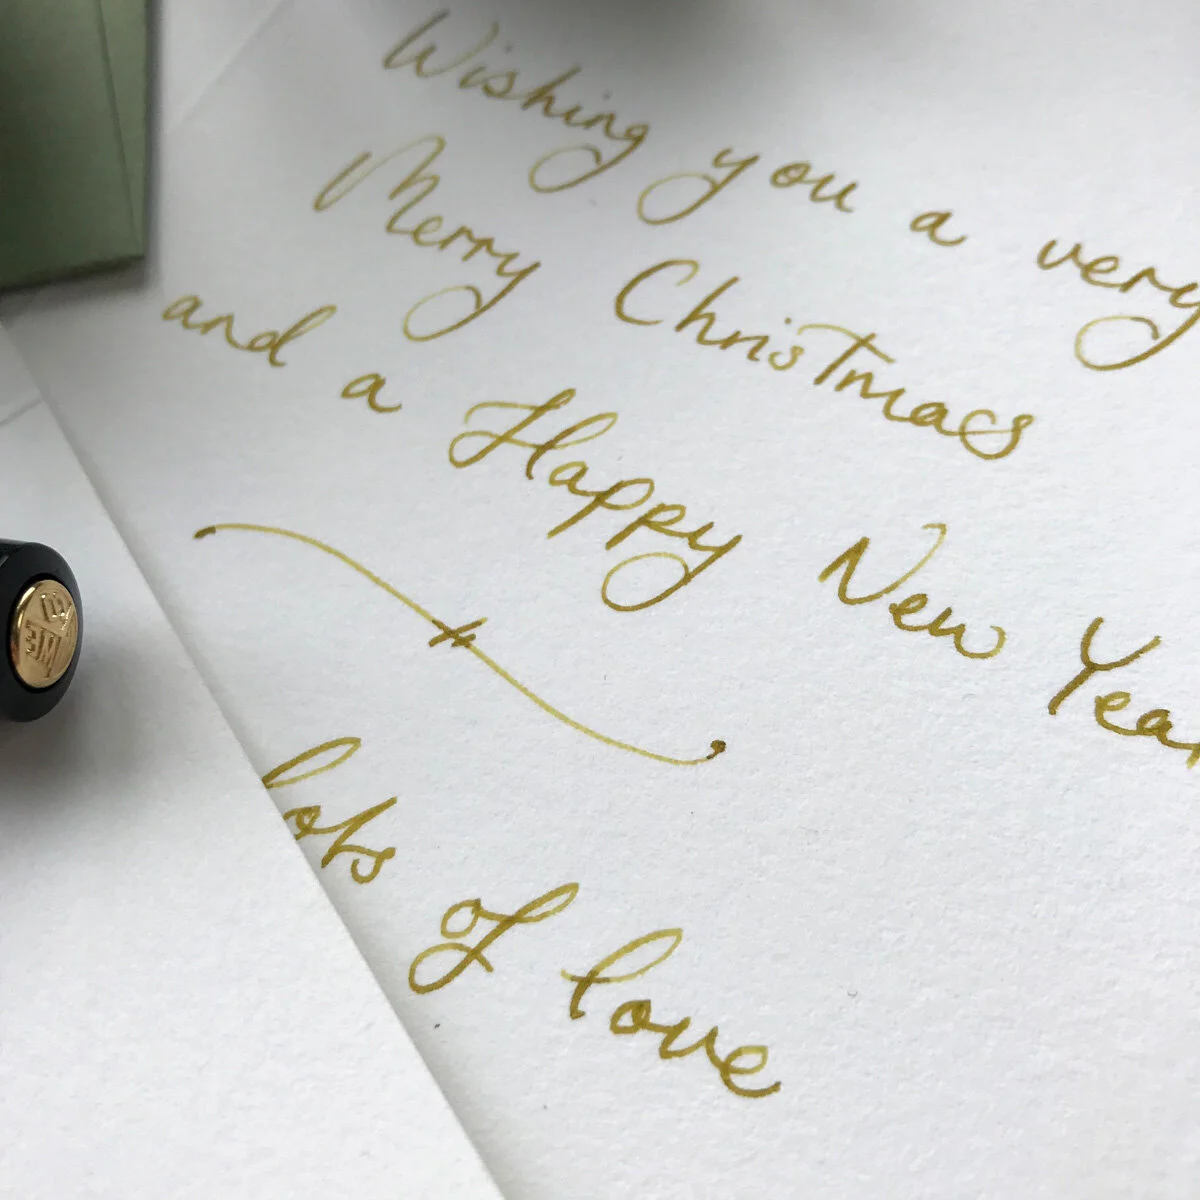 Wishing you a very
Merry Christmas
and a Happy New Year
lots of love